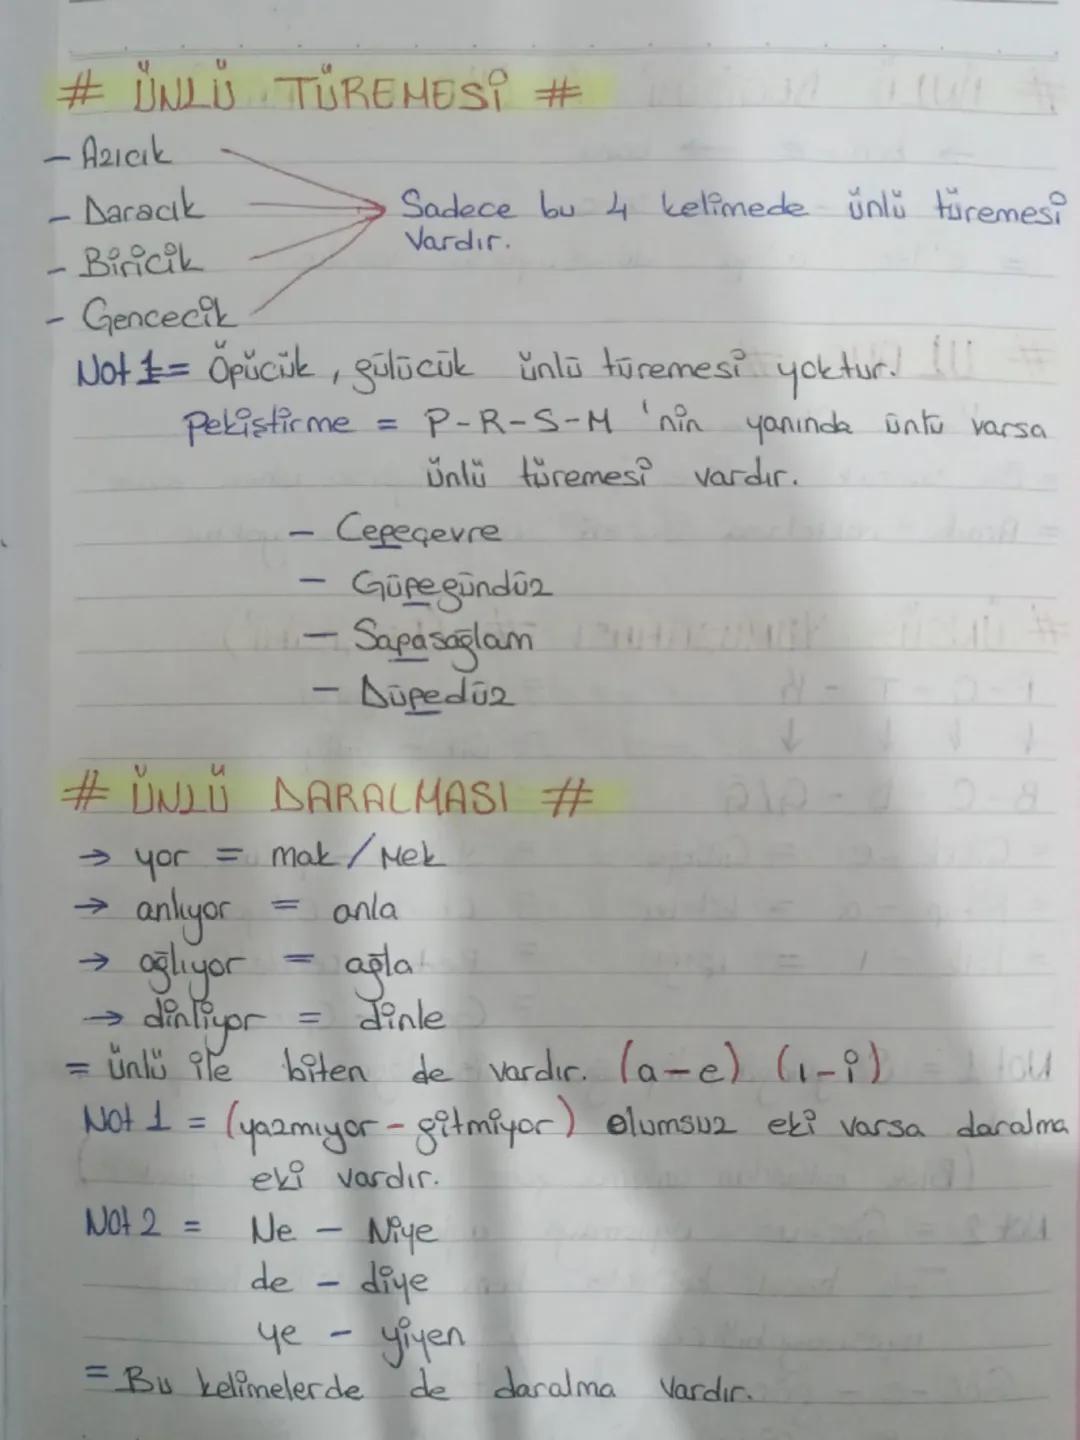 # ÜNLÜ TÜREMESİ #
- Azıcık
- Daracık
Sadece bu 4 kelimede ünlü türemesi
Vardır.
- Biricik
- Gencecik
Not 1 = Öpücük, gülücük ünlü türemesi yoktur.
Pekiştirme = P-R-S-M 'nin yanında ünlü varsa
ünlü türemesi vardır.
- Cepeçevre
- Güpegündüz
- Sapasağlam
- Düpedüz
# ÜNLÜ DARALMASI #
→ yor = mak / Mek
→ anlıyor = anla
→ ağlıyor = ağla
→ dinliyor = dinle
= ünlü ile biten de vardır. (a-e) (ı-i)
Not 1 = (yazmıyor - gitmiyor) olumsuz eki varsa daralma
eki vardır.
Not 2 = Ne - Niye
de - diye
ye - yiyen
= Bu kelimelerde de daralma Vardır.